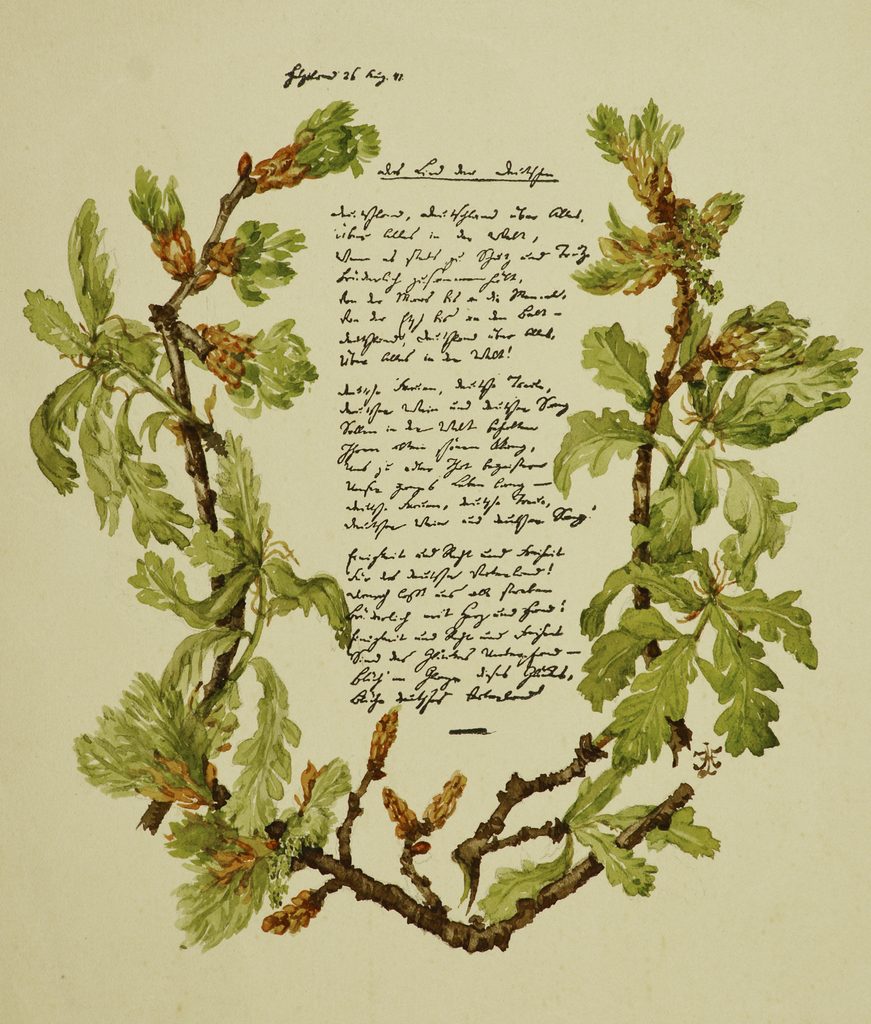 Helgoland 26 Aug. 41.
Das Lied der Deutschen
Deutschland, Deutschland über Alles,
Über Alles in der Welt,
Wenn es stets zu Schutz und Trutze
Brüderlich zusammenhält,
Von der Maas bis an die Memel,
Von der Etsch bis an den Belt –
Deutschland, Deutschland über Alles,
Über Alles in der Welt!
Deutsche Frauen, deutsche Treue,
Deutscher Wein und deutscher Sang
Sollen in der Welt behalten
Ihren alten schönen Klang,
Uns zu edler That begeistern
Unser ganzes Leben lang –
Deutsche Frauen, deutsche Treue,
Deutscher Wein und deutscher Sang!
Einigkeit und Recht und Freiheit
Für das deutsche Vaterland!
Danach laßt uns alle streben
Brüderlich mit Herz und Hand!
Einigkeit und Recht und Freiheit
Sind des Glückes Unterpfand –
Blüh im Glanze dieses Glückes,
Blühe deutsches Vaterland